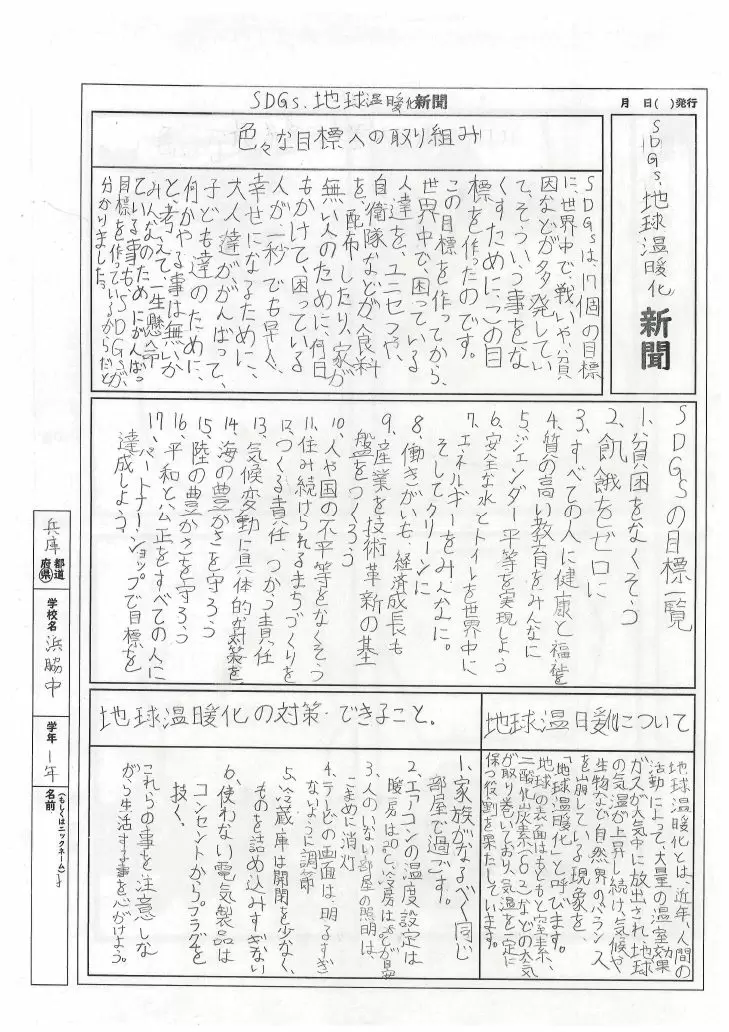 SDGs、地球温暖化新聞
月 日( )発行
SDGs、地球温暖化
新聞
色々な目標への取り組み
SDGsは、17個の目標
に、世界中で、戦いや、貧
困などが多発してい
て、そういう事をな
くすために、この目
標を作ったのです。
この目標を作ってから、
世界中で、困っている
人達を、ユニセフや、
自衛隊などが食料
を、配布したり、家が
無い人のために、何日
もかけて、困っている
人が一秒でも早く、
幸せになるために、
大人達ががんばって、
子ども達のために、
何かやる事は無いか
と、考えて、一生懸命
みんなのためにがんばっ
ている事も、SDGsが、
目標を作っているからだと
分かりました。
SDGsの目標一覧
1、貧困をなくそう
2、飢餓をゼロに
3、すべての人に健康と福祉を
4、質の高い教育をみんなに
5、ジェンダー平等を実現しよう
6、安全な水とトイレを世界中に
7、エネルギーをみんなに。
そしてクリーンに
8、働きがいも、経済成長も
9、産業と技術革新の基
盤をつくろう
10、人や国の不平等をなくそう
11、住み続けられるまちづくりを
12、つくる責任、つかう責任
13、気候変動に具体的な対策を
14、海の豊かさを守ろう
15、陸の豊かさを守ろう
16、平和と公正をすべての人に
17、パートナーショップで目標を
達成しよう
地球温暖化について
地球温暖化とは、近年、人間の
活動によって、大量の温室効果
ガスが大気中に放出され、地球
の気温が上昇し続け、気候や
生物など自然界のバランス
を崩している現象を、
「地球温暖化」と呼びます。
地球の表面はもともと窒素、
二酸化炭素(CO2)などの大気
が取り巻いており、気温を一定に
保つ役割を果たしています。
地球温暖化の対策・できること。
1、家族がなるべく同じ
部屋で過ごす。
2、エアコンの温度設定は
暖房は20℃、冷房は28℃が目安
3、人のいない部屋の照明は、
こまめに消灯
4、テレビの画面は、明るすぎ
ないように調節
5、冷蔵庫は開閉を少なく、
ものを詰め込みすぎない
6、使わない電気製品は
コンセントからプラグを
抜く、
これらの事を注意しな
がら生活する事を心がけよう。
兵庫
都道
府県
学校名
浜脇中
学年
1年
名前
(もしくはニックネーム)